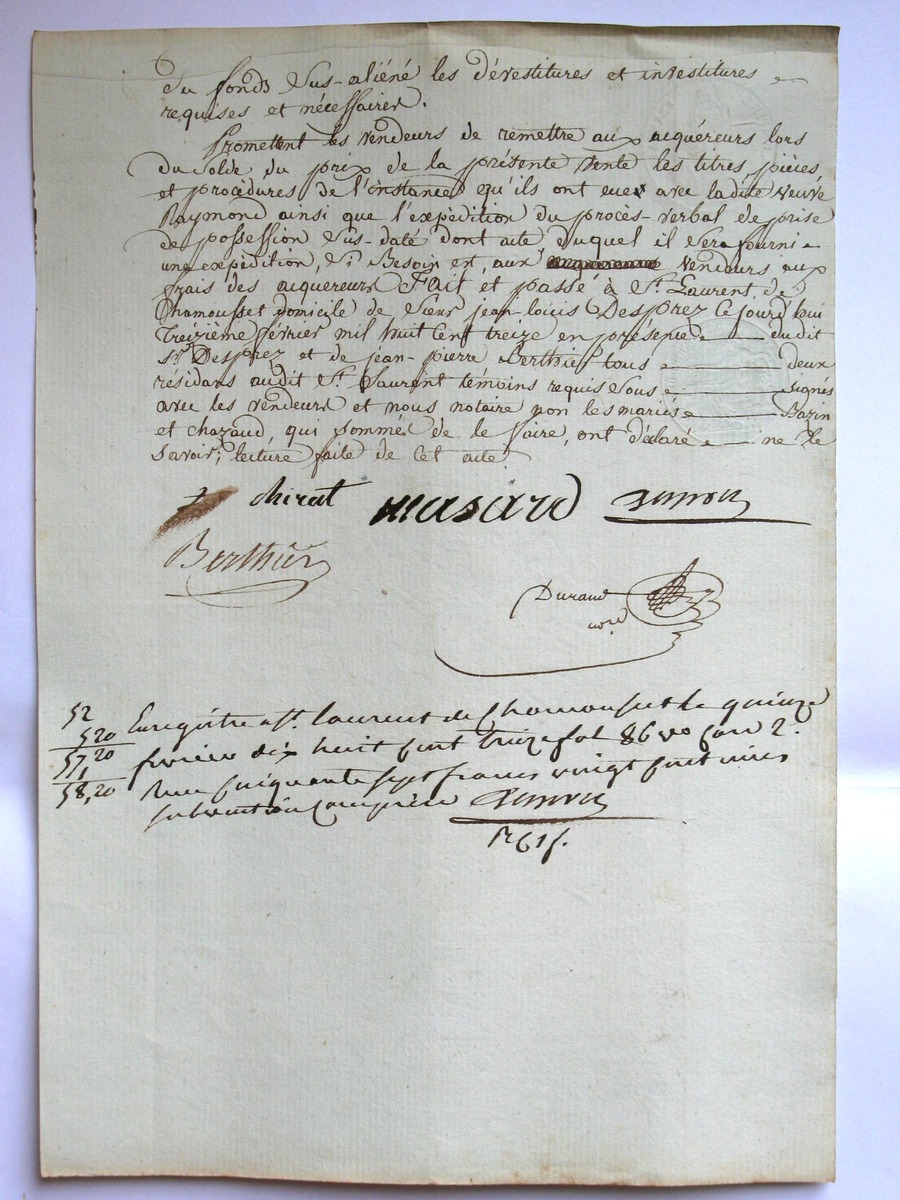 du fonds sus-aliéné les dévestitures et investitures
requises et nécessaires.
Promettent les vendeurs de remettre aux acquéreurs lors
du solde du prix de la présente vente les titres, pièces
et procédures de l'instance qu'ils ont eues avec la dite veuve
Raymond ainsi que l'expédition du procès-verbal de prise
de possession sus-daté dont acte duquel il sera fourni
une expédition, si Besoin est, aux vendeurs aux
frais des acquereurs Fait et passé à St. Laurent de
Chamousset domicile de Sieur jean-louis Desprez Ce jourd'hui
treizième février mil huit cent treize en présence du dit
Sr. Desprez et de jean-pierre Berthier tous deux
résidans audit St. Laurent témoins requis sous signés
avec les vendeurs et nous notaire non les mariés Bazin
et chazaud, qui sommés de le faire, ont déclaré ne le
savoir; lecture faite de cet acte.
chirat masard
Berthier
Durand
nore
52
5,20
57,20
1
58,20
Enregistré a St. laurent de Chamousset le quinze
fevrier dix huit cent treize fol 86 vo case 2.
Reçu cinquante sept francs vingt centimes
subvention comprise